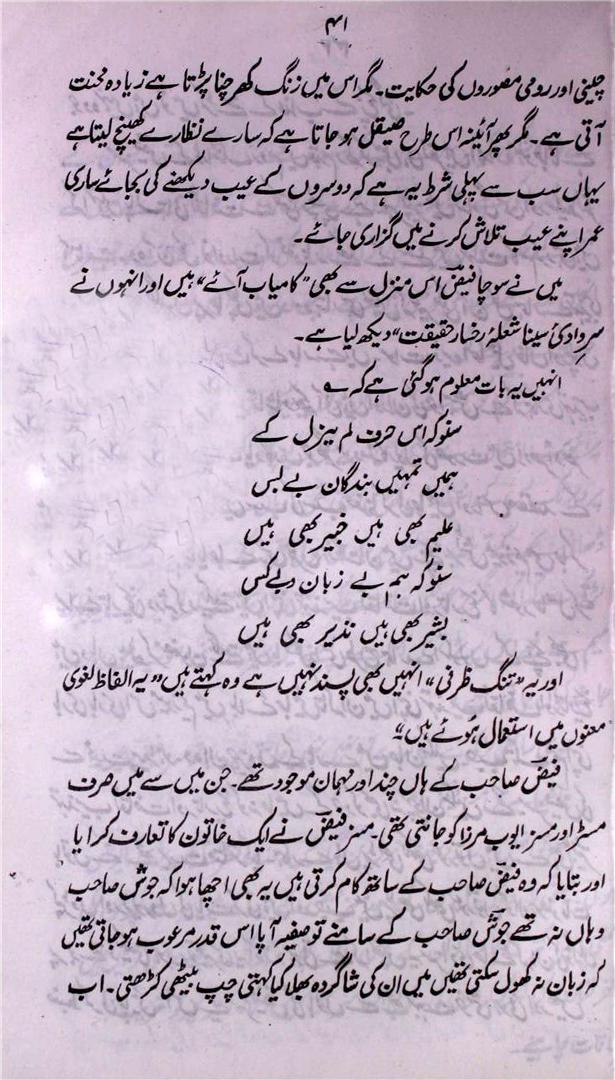 ۴۱
چینی اور رومی مصوروں کی حکایت۔ مگر اس میں زنگ کھرچنا پڑتا ہے زیادہ محنت
آتی ہے۔ مگر پھر آئینہ اس طرح صیقل ہو جاتا ہے کہ سارے نظارے کھینچ لیتا ہے
یہاں سب سے پہلی شرط یہ ہے کہ دوسروں کے عیب دیکھنے کی بجائے ساری
عمر اپنے عیب تلاش کرنے میں گزاری جائے۔
میں نے سوچا فیضؔ اس منزل سے بھی "کامیاب آئے" ہیں اور انہوں نے
سرِ وادیٔ سینا شعلۂ رخسار حقیقت" دیکھ لیا ہے۔
انہیں یہ بات معلوم ہو گئی ہے کہ ؎
سنو کہ اس حرف لم یزل کے
ہمیں تمہیں بندگان بے بس
علیم بھی ہیں خبیر بھی ہیں
سنو کہ ہم بے زبان و بے کس
بشیر بھی ہیں نذیر بھی ہیں
اور یہ "تنگ ظرفی" انہیں بھی پسند نہیں ہے وہ کہتے ہیں "یہ الفاظ لغوی
معنوں میں استعمال ہوئے ہیں"
فیضؔ صاحب کے ہاں چند اور مہمان موجود تھے۔ جن میں سے میں صرف
مسٹر اور مسز ایوب مرزا کو جانتی تھی۔ مسز فیضؔ نے ایک خاتون کا تعارف کرایا
اور بتایا کہ وہ فیضؔ صاحب کے ساتھ کام کرتی ہیں یہ بھی اچھا ہوا کہ جوشؔ صاحب
وہاں نہ تھے جوشؔ صاحب کے سامنے تو صفیہ آپا اس قدر مرعوب ہو جاتی تھیں
کہ زبان نہ کھول سکتی تھیں میں ان کی شاگردہ بھلا کیا کہتی چپ بیٹھی کڑھتی۔ اب